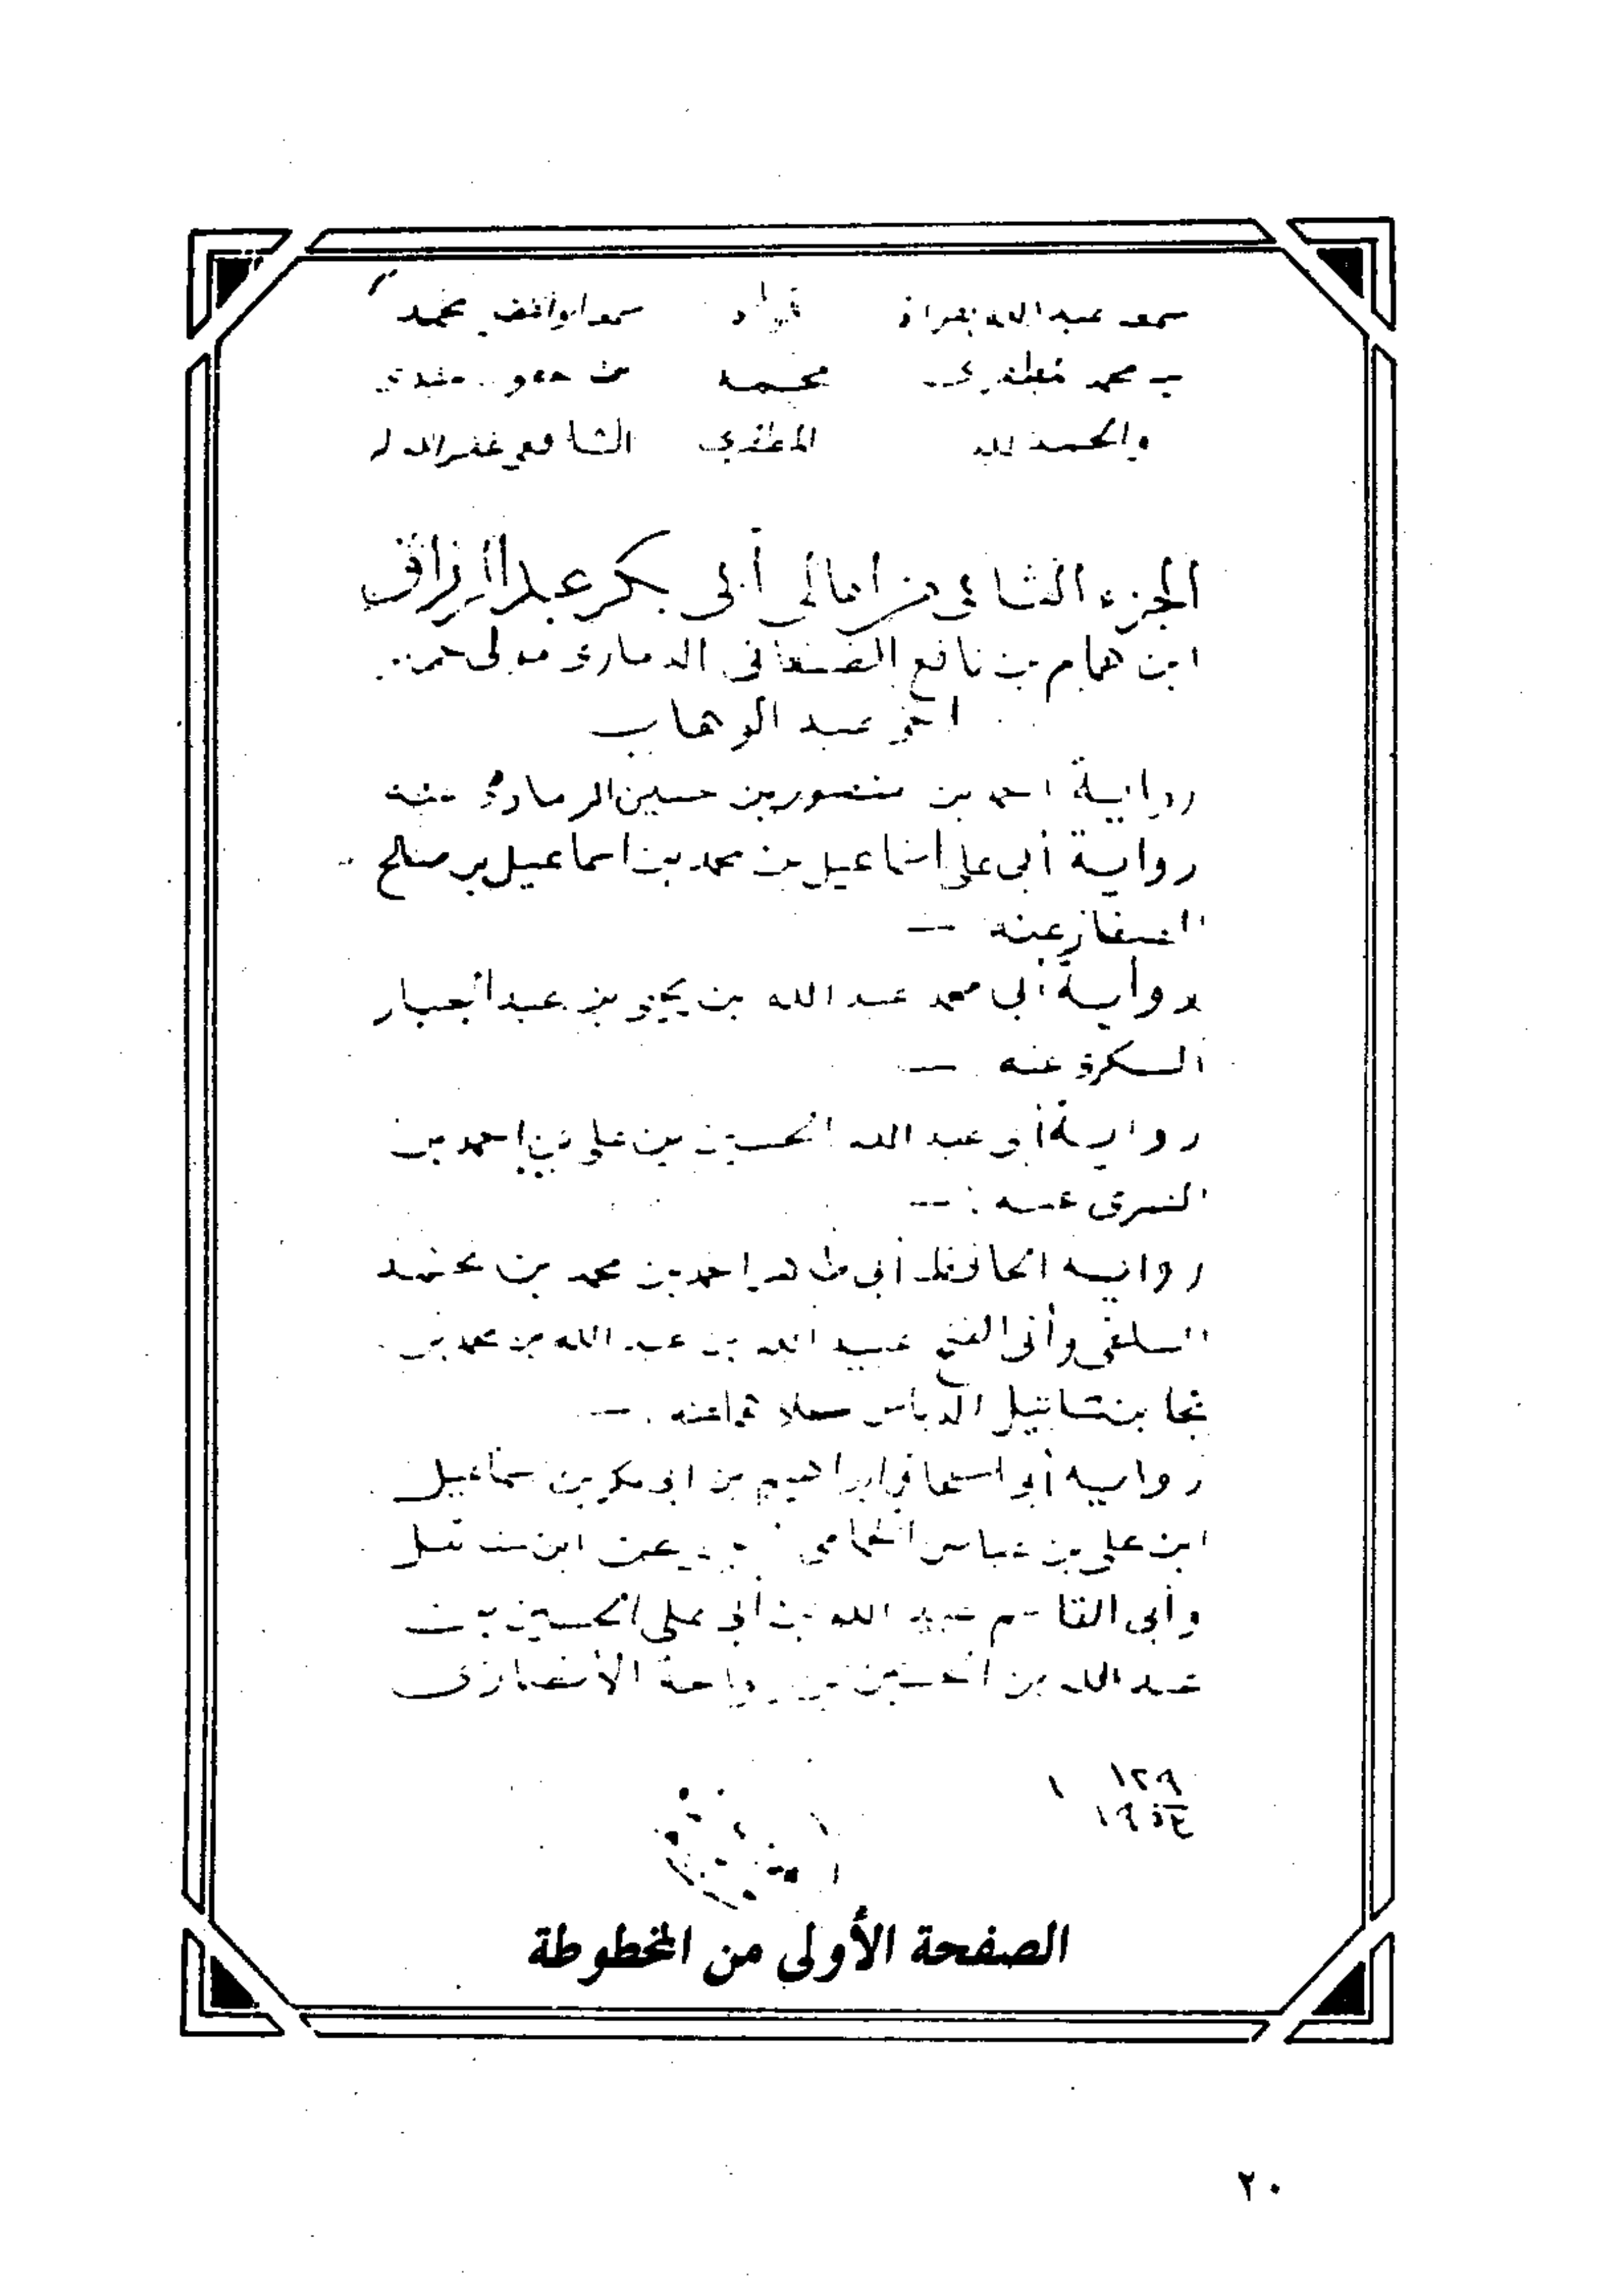 سمعه عبد الله بقراءة
بن محمد مظفري
والحمد لله
قرأه
محمد
المظفري
سمعه ابو الفضل محمد
الشافعي غفر الله له
الجزء الثاني من امالي أبي بكر عبد الرزاق
ابن همام بن نافع الصنعاني الدماري مولى حمير
اخو عبد الوهاب
رواية احمد بن منصور بن حسين الرمادي عنه
رواية أبي علي اسماعيل بن محمد بن اسماعيل بن صالح
الصفار عنه —
رواية أبي محمد عبد الله بن يحيى بن عبد الجبار
السكري عنه —
رواية أبو عبد الله الحسين بن علي بن احمد بن
البسري عنه : —
رواية الحافظ أبي طاهر احمد بن محمد بن محمد
السلفي وأبي الفتح عبيد الله بن عبد الله بن محمد بن
نجا بن شاتيل الدباس كلاهما عنه . —
رواية أبو اسحاق ابراهيم بن ابو بكر بن اسماعيل
ابن علي بن عباس الحمامي عن ابن شاتيل
وأبي القاسم عبد الله بن أبي علي الحسين بن
عبد الله بن الحسين بن رواحة الأنصاري
١٢٩ ١
الصفحة الأولى من المخطوطة
٢٠